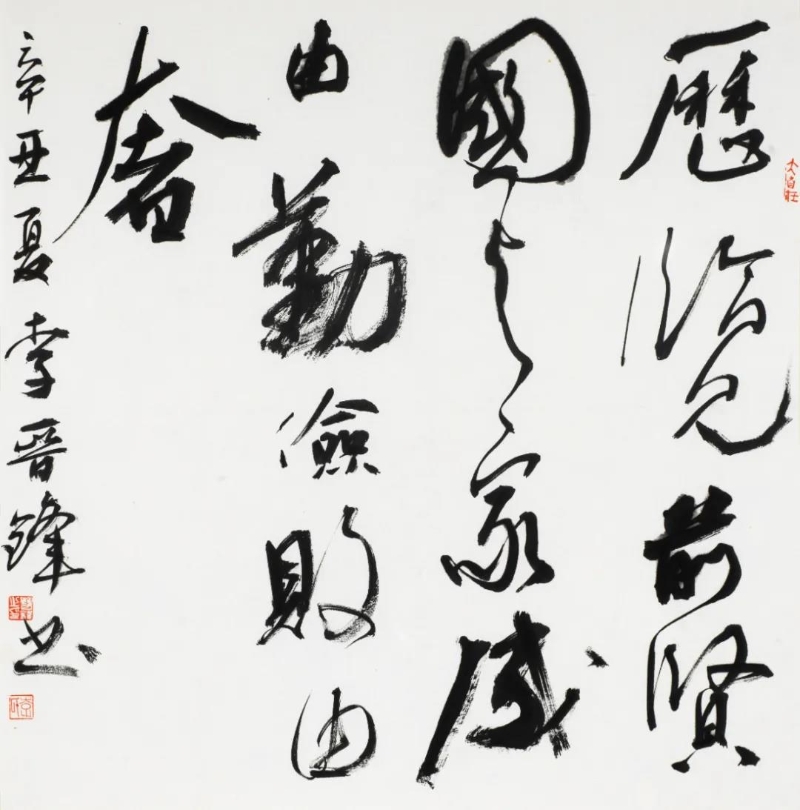 歷覽前賢
國与家成
由勤儉敗由
奢
辛丑夏李晉鋒书